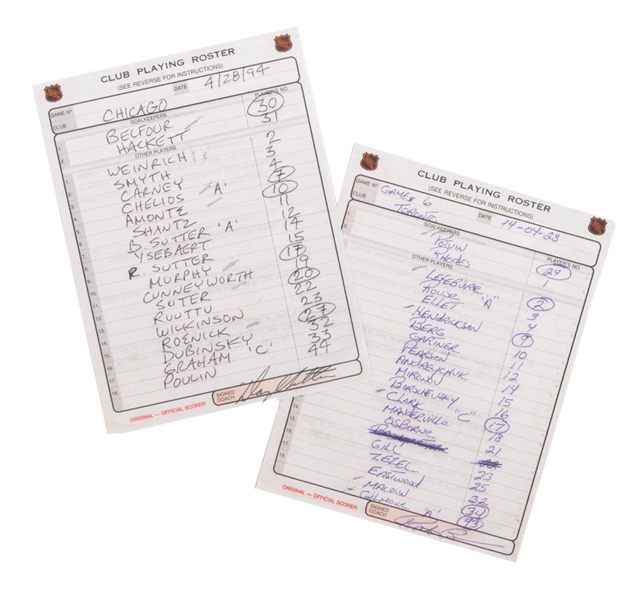 CLUB PLAYING ROSTER
(SEE REVERSE FOR INSTRUCTIONS)
DATE 4/28/94
GAME Nº
CLUB CHICAGO PLAYER'S NO.
GOALKEEPERS
BELFOUR 30
HACKETT 31
OTHER PLAYERS
WEINRICH 2
SMYTH 3
CARNEY 4
CHELIOS "A" 7
AMONTE 10
SHANTZ 11
B. SUTTER "A" 12
YSEBAERT 14
R. SUTTER 15
MURPHY 17
CUNNEYWORTH 19
SUTER 20
RUUTTU 22
WILKINSON 23
ROENICK 27
DUBINSKY 32
GRAHAM "C" 33
POULIN 44
SIGNED
COACH
ORIGINAL — OFFICIAL SCORER
CLUB PLAYING ROSTER
(SEE REVERSE FOR INSTRUCTIONS)
GAME Nº GAME# 6 DATE 14-04-28
CLUB TORONTO
GOALKEEPERS PLAYER'S NO.
POTVIN 29
RHODES 1
OTHER PLAYERS
LEFEBVRE 2
ROUSE "A" 3
ELLET 4
HENDRICKSON
BERG 10
GARTNER 11
PEARSON 12
ANDREYCHUK 14
MIRONOV 15
BORSCHEVSKY 16
CLARK "C" 17
MANDERVILLE 18
OSBORNE 21
GILL 23
ZEZEL 25
EASTWOOD 32
MACOUN 34
GILMOUR "A" 93
SIGNED
COACH
ORIGINAL — OFFICIAL SCORER